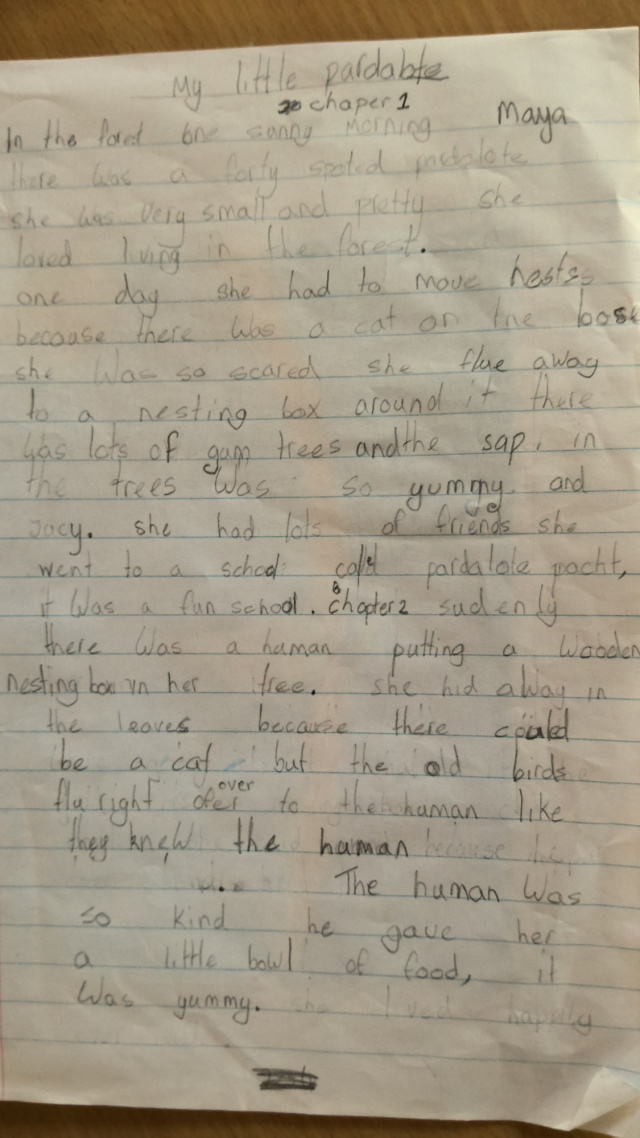 My little pardalote
chaper 1
Maya
In the forist one sunny morning
there was a forty spoted pardalote
she was very small and pretty she
loved living in the forest.
one day she had to move nests
because there was a cat on the loose
she was so scared she flue away
to a nesting box around it there
was lots of gum trees and the sap. in
the trees was so yummy and
Jucy. she had lots of friends she
went to a school calld pardalote pacht,
it was a fun school. chapter 2 sudenly
there was a human putting a wooden
nesting box in her tree. she hid away in
the leaves because there could
be a cat but the old birds
flu right over to the human like
they knew the human because
The human was
so kind he gave her
a little bowl of food, it
was yummy. she lived happily